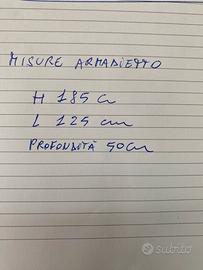 MISURE ARMADIETTO
H 185 cm
L 125 cm
PROFONDITÀ 50cm
subito